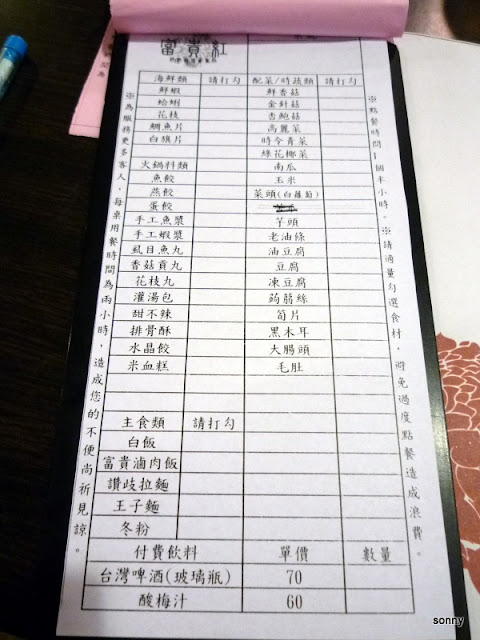 富貴紅
海鮮類 請打勾 配菜/時蔬類 請打勾
鮮蝦 鮮香菇
蛤蜊 金針菇
花枝 杏鮑菇
鯛魚片 高麗菜
白旗片 時令青菜
綠花椰菜
火鍋料類 南瓜
魚餃 玉米
燕餃 菜頭(白蘿蔔)
蛋餃
手工魚漿 芋頭
手工蝦漿 老油條
虱目魚丸 油豆腐
香菇貢丸 豆腐
花枝丸 凍豆腐
灌湯包 蒟蒻絲
甜不辣 筍片
排骨酥 黑木耳
水晶餃 大腸頭
米血糕 毛肚
主食類 請打勾
白飯
富貴滷肉飯
讚歧拉麵
王子麵
冬粉
付費飲料 單價 數量
台灣啤酒(玻璃瓶) 70
酸梅汁 60
※為服務更多客人，每桌用餐時間為兩小時，造成您的不便尚祈見諒。
※點餐時間1個半小時。※請適量勾選食材，避免過度點餐造成浪費。
sonny